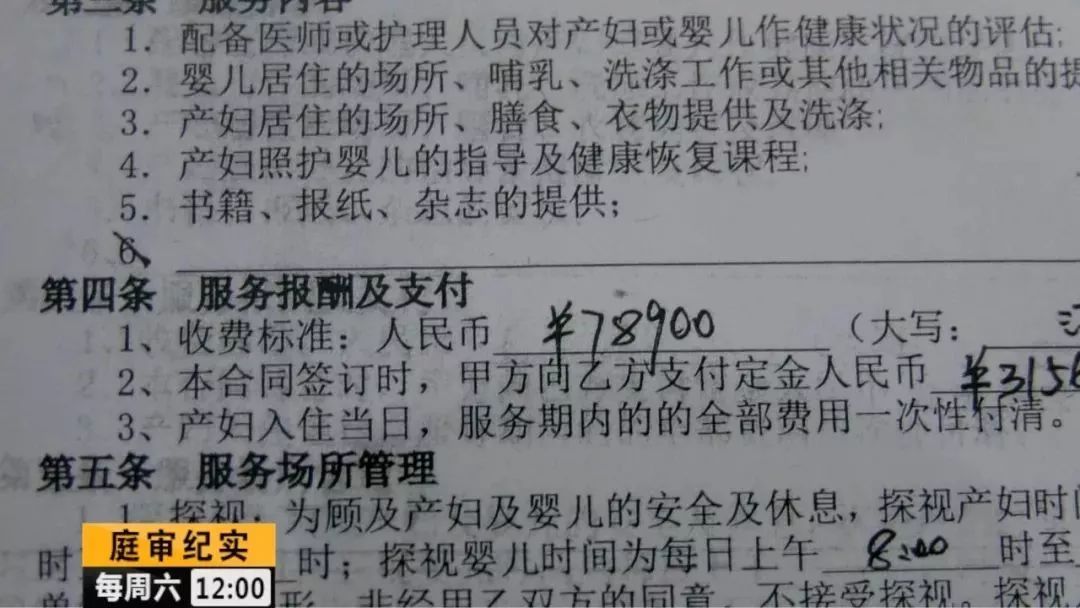 第三条 服务内容
1. 配备医师或护理人员对产妇或婴儿作健康状况的评估;
2. 婴儿居住的场所、哺乳、洗涤工作或其他相关物品的提
3. 产妇居住的场所、膳食、衣物提供及洗涤;
4. 产妇照护婴儿的指导及健康恢复课程;
5. 书籍、报纸、杂志的提供;
6、
第四条 服务报酬及支付
1、收费标准：人民币 ¥78900 （大写：
2、本合同签订时，甲方向乙方支付定金人民币 ¥3156
3、产妇入住当日，服务期内的的全部费用一次性付清。
第五条 服务场所管理
1、探视：为顾及产妇及婴儿的安全及休息，探视产妇时间
时 时；探视婴儿时间为每日上午 8:00 时至
形，非经甲乙双方的同意，不接受探视。探视
庭审纪实
每周六 12:00